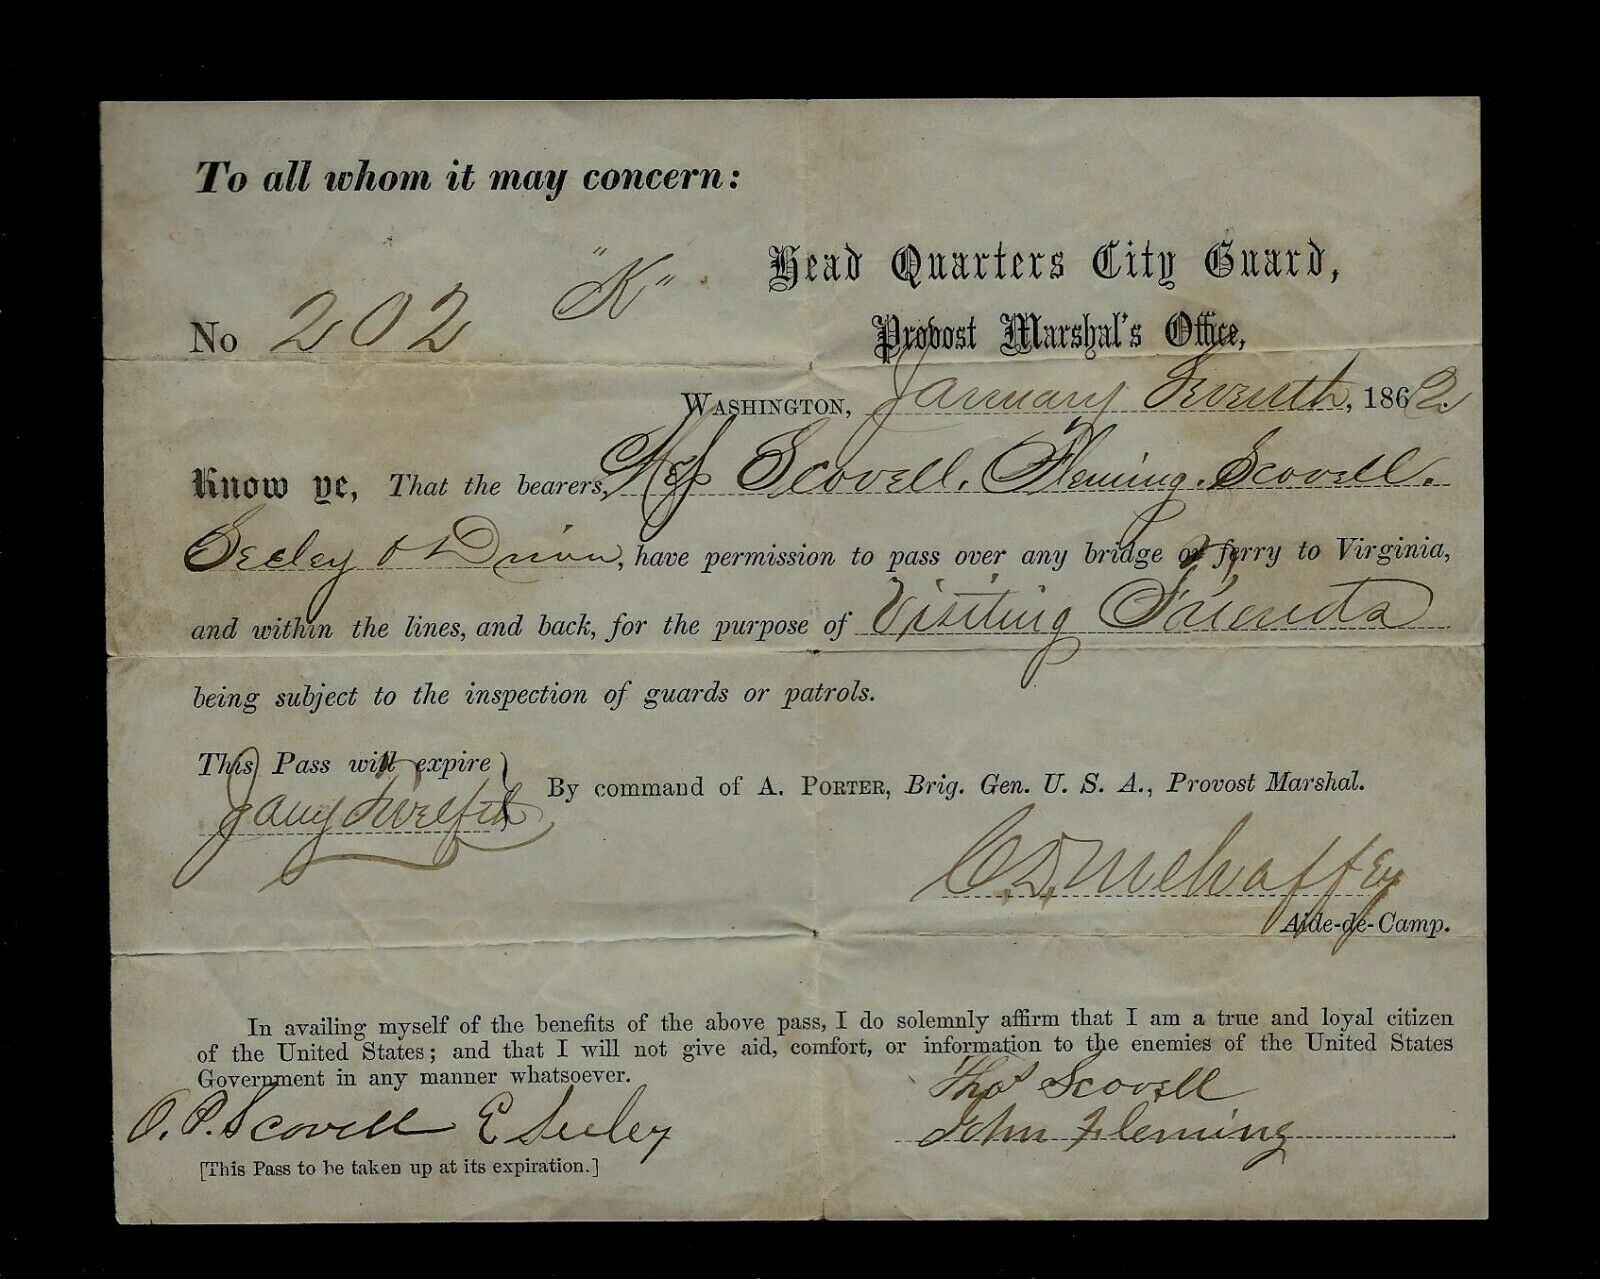 To all whom it may concern:
"K"
Head Quarters City Guard,
No 202
Provost Marshal's Office,
Washington, January Seventh, 1862.
Know ye, That the bearers, Scovell. Fleming. Scovell.
Seeley & , have permission to pass over any bridge or ferry to Virginia,
and within the lines, and back, for the purpose of Visiting Friends
being subject to the inspection of guards or patrols.
This Pass will expire
Jany Twelfth
By command of A. Porter, Brig. Gen. U. S. A., Provost Marshal.
C. D. Mehaffey
Aide-de-Camp.
In availing myself of the benefits of the above pass, I do solemnly affirm that I am a true and loyal citizen
of the United States; and that I will not give aid, comfort, or information to the enemies of the United States
Government in any manner whatsoever.
Thos Scovell
O. P. Scovell E Seeley
John Fleming
[This Pass to be taken up at its expiration.]